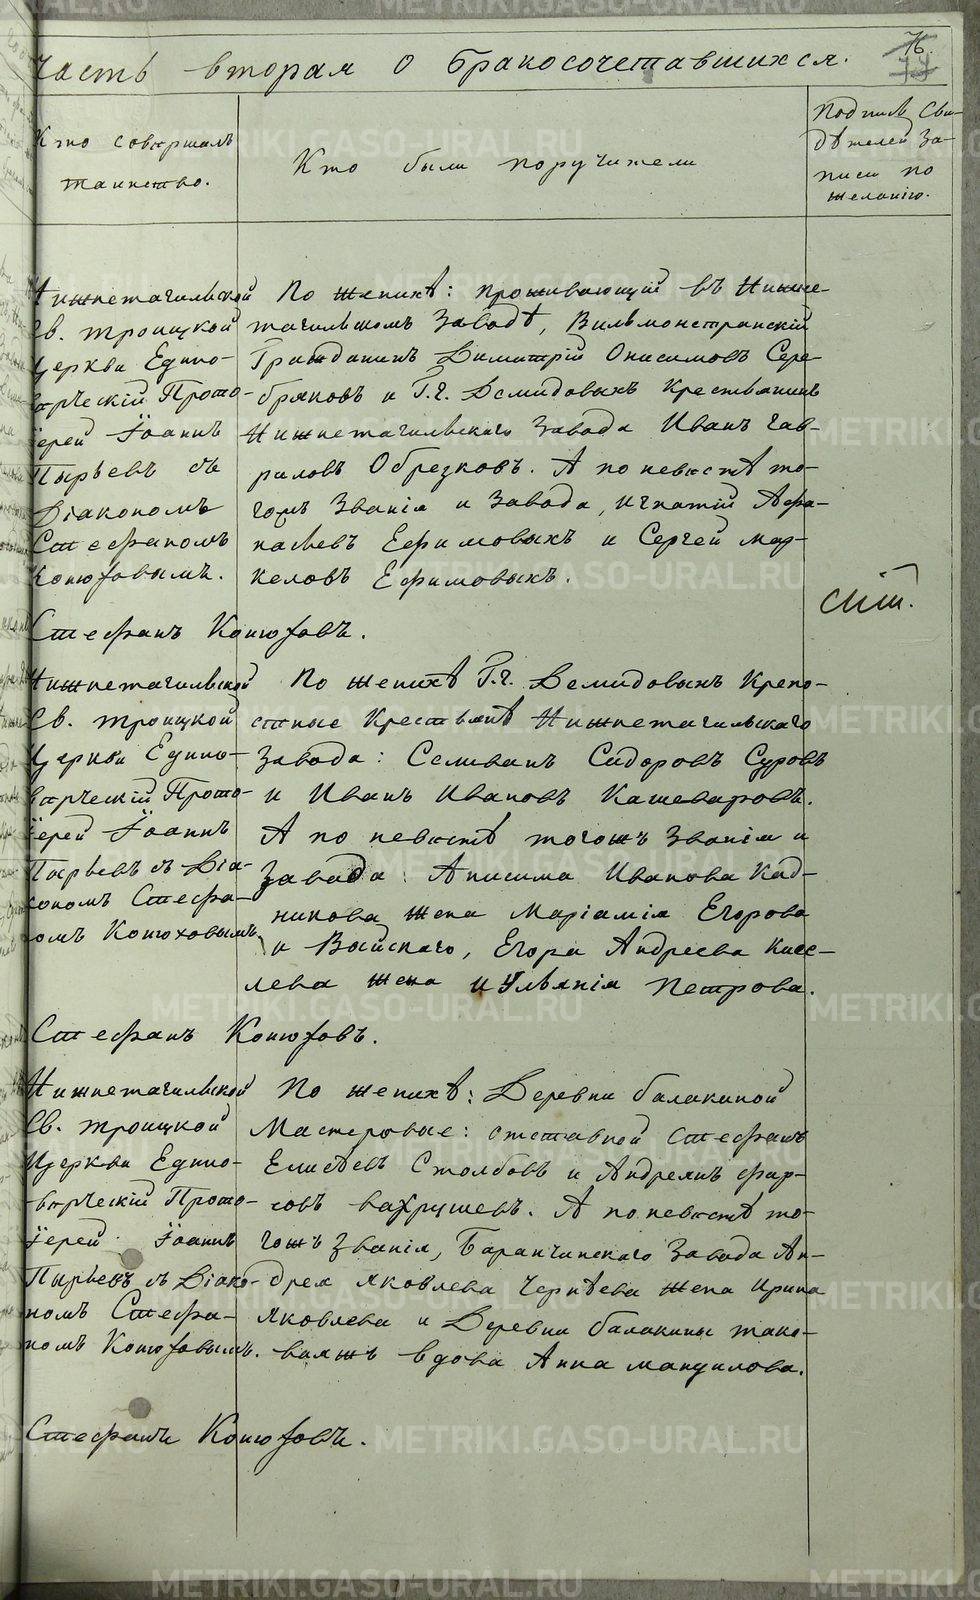 76.
Часть вторая о бракосочетавшихся.
Кто совершалъ
таинство.
Кто были поручители
Подпись Сви-
дѣтелей За-
писи по
желанію.
Нижнетагильской
Св. Троицкой
Церкви Едино-
вѣрческій Прото-
Іерей Іоаннъ
Пырьевъ съ
Діакономъ
Стефаномъ
Конюховымъ.
Стефанъ Конюховъ.
По женихѣ: проживающій въ Нижне-
тагильскомъ Заводѣ, Вильманстранскій
Гражданинъ Димитрій Онисимовъ Сере-
бряковъ и Г.г. Демидовыхъ крестьянинъ
Нижнетагильскаго Завода Иванъ Гав-
риловъ Обрезковъ. А по невѣстѣ то-
гожъ Званія и Завода, Игнатій Афа-
насьевъ Ефимовыхъ и Сергей Мар-
келовъ Ефимовыхъ.
Нижнетагильской
Св. Троицкой
Церкви Едино-
вѣрческій Прото-
Іерей Іоаннъ
Пырьевъ съ Діа-
кономъ Стефа-
номъ Конюховымъ
Стефанъ Конюховъ.
По женихѣ Г.г. Демидовыхъ Крепо-
стные Крестьянѣ Нижнетагильскаго
Завода: Селиванъ Сидоровъ Суровъ
и Иванъ Ивановъ Кашеваровъ.
А по невѣстѣ тогожъ Званія и
Завода: Анисима Иванова Кад-
никова жена Маріамія Егорова
и Войскаго, Егора Андреева Кисе-
лева жена Иульянія Петрова.
Нижнетагильской
Св. Троицкой
Церкви Едино-
вѣрческій Прото-
Іерей Іоаннъ
Пырьевъ съ Діако-
номъ Стефа-
номъ Конюховымъ.
Стефанъ Конюховъ.
По женихѣ: Деревни балакиной
Мастеровые: отставной Стефанъ
Елисѣевъ Столбовъ и Андреянъ фир-
совъ вахрушевъ. А по невѣстѣ то-
гожъ Званія, Баранчинскаго Завода Ан-
дрея Яковлева Чернѣева жена Ирина
Яковлева и Деревни балакины тако-
ваяжъ вдова Анна Мануилова.